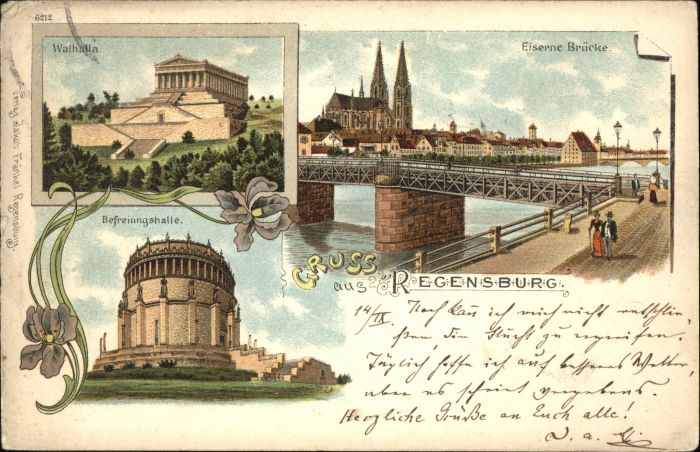 6212
Walhalla.
Eiserne Brücke.
Verlag Jakob Fränkel Regensburg.
Befreiungshalle.
GRUSS
aus REGENSBURG.
14/IX Noch kann ich mich nicht entschlie-
ßen die Flucht zu ergreifen.
Täglich hoffe ich auf besseres Wetter,
aber es scheint vergebens.
Herzliche Grüße an Euch alle!